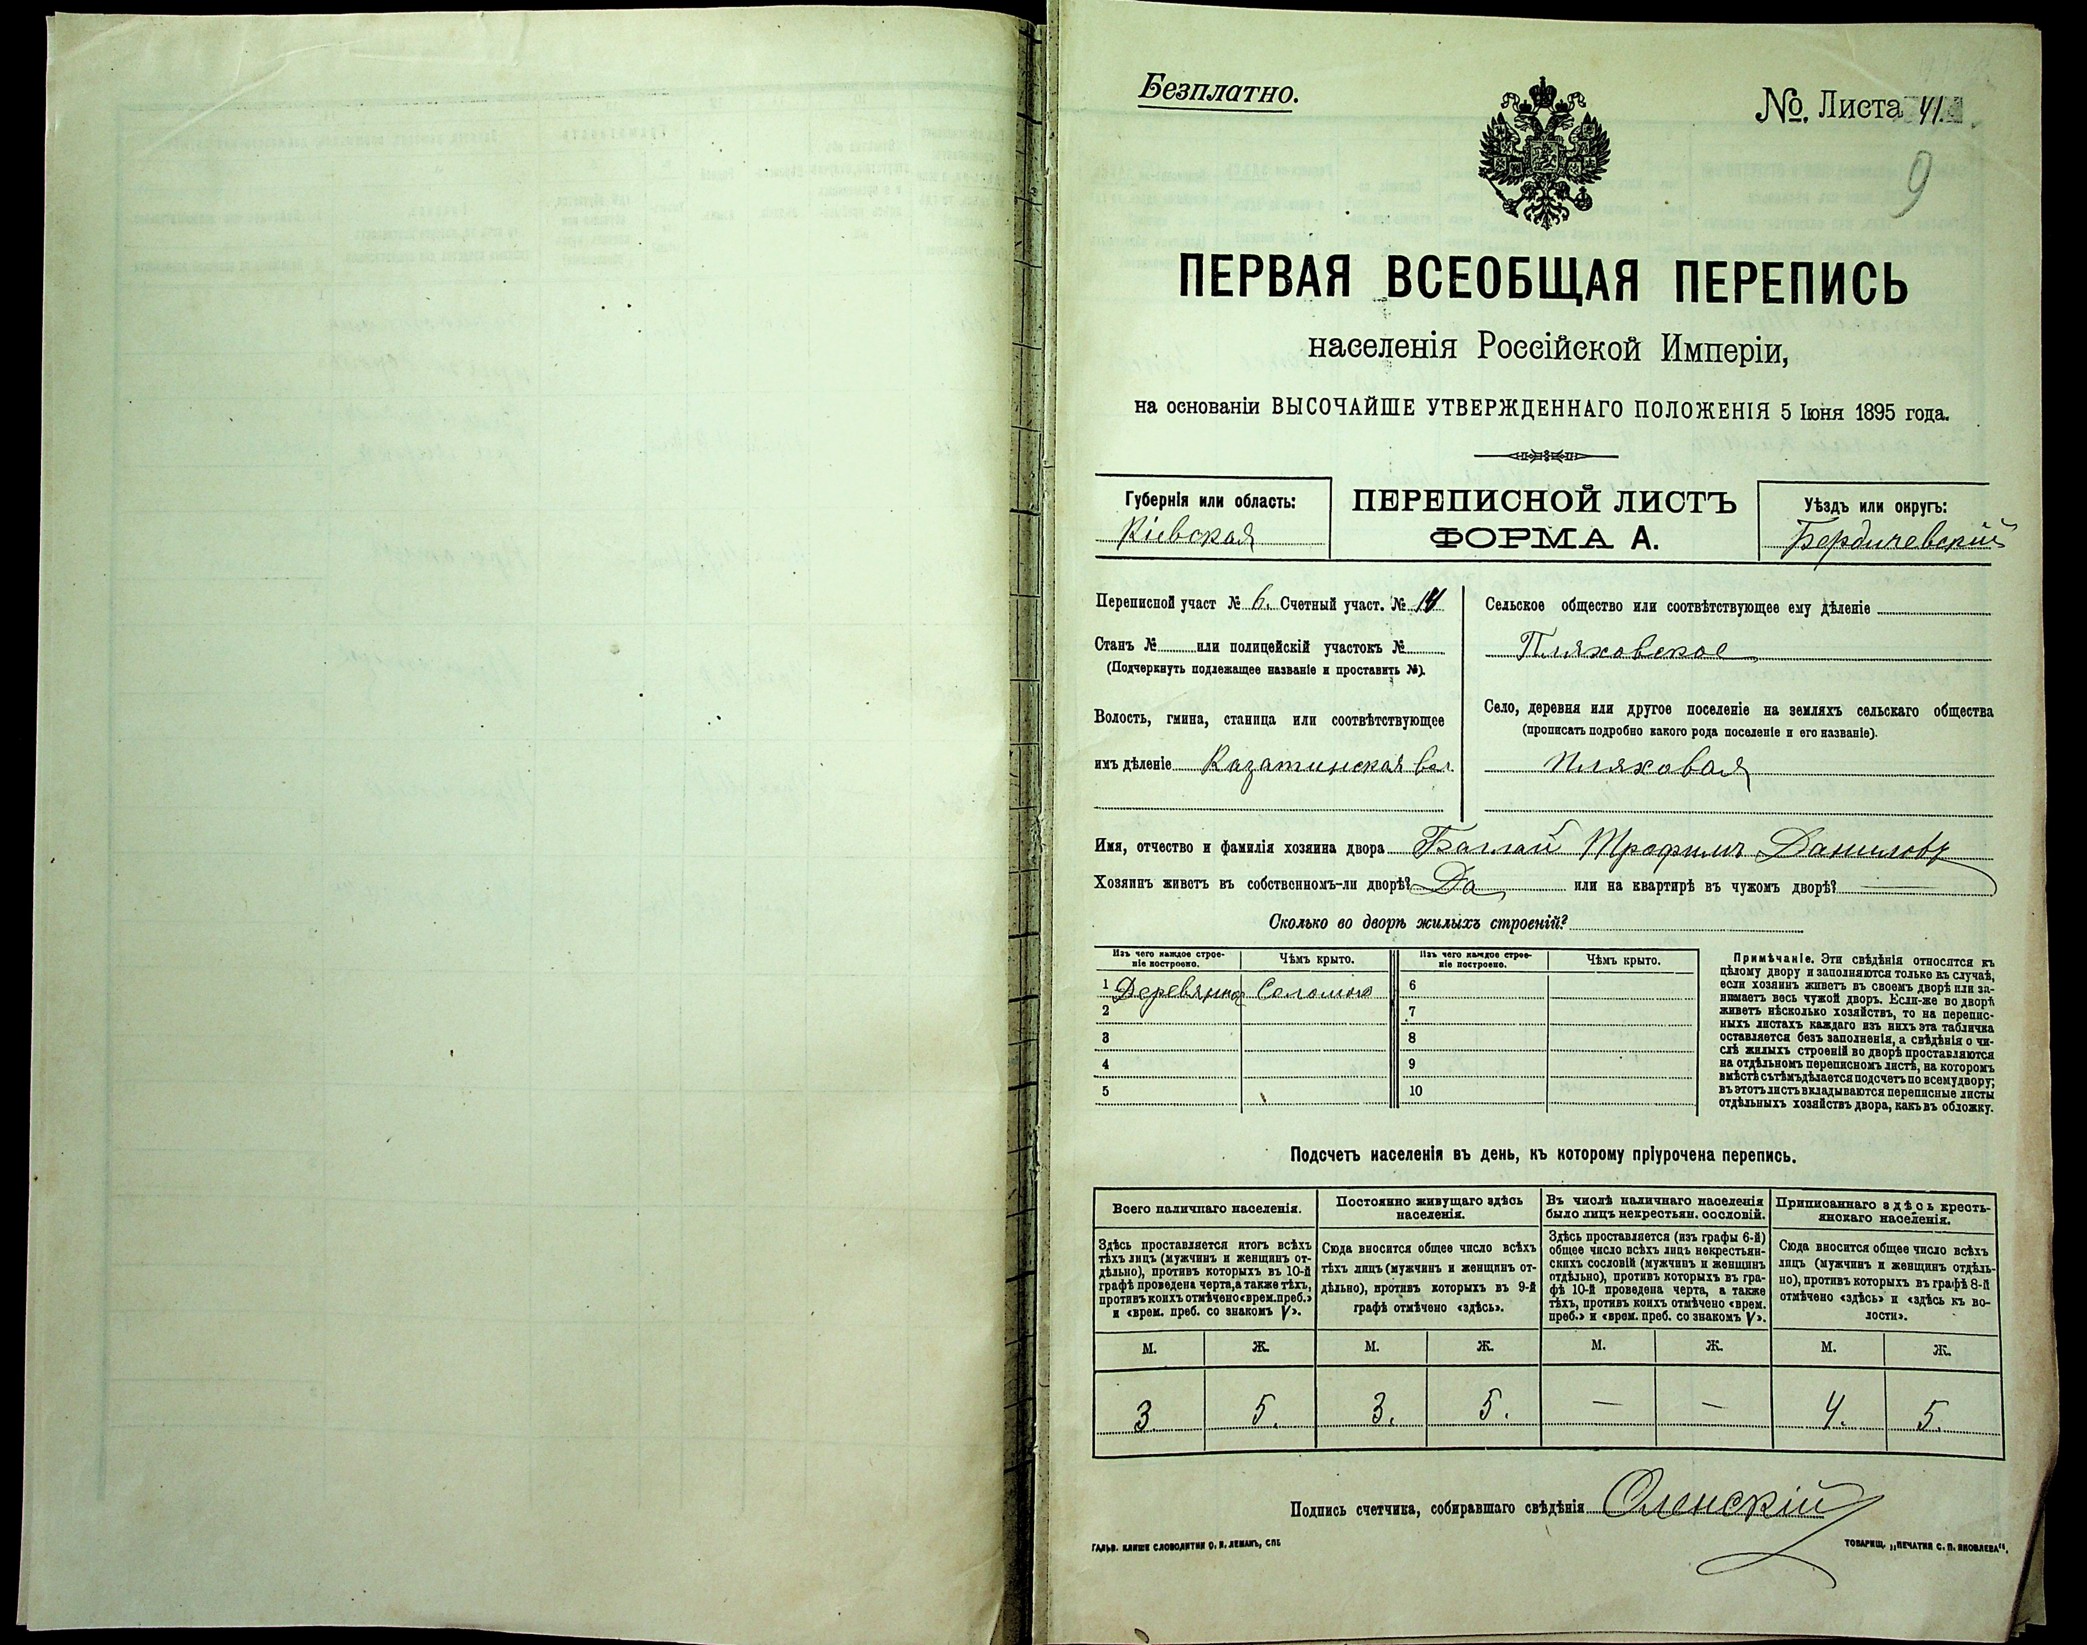 Безплатно.
№. Листа 41.
9
ПЕРВАЯ ВСЕОБЩАЯ ПЕРЕПИСЬ
населенія Россійской Имперіи,
на основаніи ВЫСОЧАЙШЕ УТВЕРЖДЕННАГО ПОЛОЖЕНІЯ 5 Іюня 1895 года.
Губернія или область:
Кіевская
ПЕРЕПИСНОЙ ЛИСТЪ
ФОРМА А.
Уѣздъ или округъ:
Бердичевскій
Переписной участ № 6. Счетный участ. № 14
Станъ № или полицейскій участокъ №
(Подчеркнуть подлежащее названіе и проставить №).
Волость, гмина, станица или соотвѣтствующее
имъ дѣленіе Казатинская вол.
Сельское общество или соотвѣтствующее ему дѣленіе
Пляховское
Село, деревня или другое поселеніе на земляхъ сельскаго общества
(прописать подробно какого рода поселеніе и его названіе).
Пляховая
Имя, отчество и фамилія хозяина двора Баглай Трофимъ Даниловъ
Хозяинъ живетъ въ собственномъ-ли дворѣ? Да или на квартирѣ въ чужомъ дворѣ? —
Сколько во дворѣ жилыхъ строеній?
Изъ чего каждое строе-
ніе построено.
Чѣмъ крыто.
Изъ чего каждое строе-
ніе построено.
Чѣмъ крыто.
1 Деревянное Соломою 6
2 7
3 8
4 9
5 10
Примѣчаніе. Эти свѣдѣнія относятся къ
цѣлому двору и заполняются только въ случаѣ,
если хозяинъ живетъ въ своемъ дворѣ или за-
нимаетъ весь чужой дворъ. Если-же во дворѣ
живетъ нѣсколько хозяйствъ, то на перепис-
ныхъ листахъ каждаго изъ нихъ эта табличка
оставляется безъ заполненія, а свѣдѣнія о чи-
слѣ жилыхъ строеній во дворѣ проставляются
на отдѣльномъ переписномъ листѣ, на которомъ
вмѣстѣ съ тѣмъ дѣлается подсчетъ по всему двору;
въ этотъ листъ вкладываются переписные листы
отдѣльныхъ хозяйствъ двора, какъ въ обложку.
Подсчетъ населенія въ день, къ которому пріурочена перепись.
Всего наличнаго населенія.
Здѣсь проставляется итогъ всѣхъ
тѣхъ лицъ (мужчинъ и женщинъ от-
дѣльно), противъ которыхъ въ 10-й
графѣ проведена черта, а также тѣхъ,
противъ коихъ отмѣчено «врем. преб.»
и «врем. преб. со знакомъ V».
Постоянно живущаго здѣсь
населенія.
Сюда вносится общее число всѣхъ
тѣхъ лицъ (мужчинъ и женщинъ от-
дѣльно), противъ которыхъ въ 9-й
графѣ отмѣчено «здѣсь».
Въ числѣ наличнаго населенія
было лицъ некрестьян. сословій.
Здѣсь проставляется (изъ графы 6-й)
общее число всѣхъ лицъ некрестьян-
скихъ сословій (мужчинъ и женщинъ
отдѣльно), противъ которыхъ въ гра-
фѣ 10-й проведена черта, а также
тѣхъ, противъ коихъ отмѣчено «врем.
преб.» и «врем. преб. со знакомъ V».
Приписаннаго здѣсь кресть-
янскаго населенія.
Сюда вносится общее число всѣхъ
лицъ (мужчинъ и женщинъ отдѣль-
но), противъ которыхъ въ графѣ 8-й
отмѣчено «здѣсь» и «здѣсь къ во-
лости».
М. Ж. М. Ж. М. Ж. М. Ж.
3 5. 3. 5. — — 4. 5.
Подпись счетчика, собиравшаго свѣдѣнія Оленскій
ГАЛЬВ. КЛИШЕ СЛОВОЛИТНИ О. И. ЛЕМАНЪ, СПБ
ТОВАРИЩ. „ПЕЧАТНЯ С. П. ЯКОВЛЕВА".